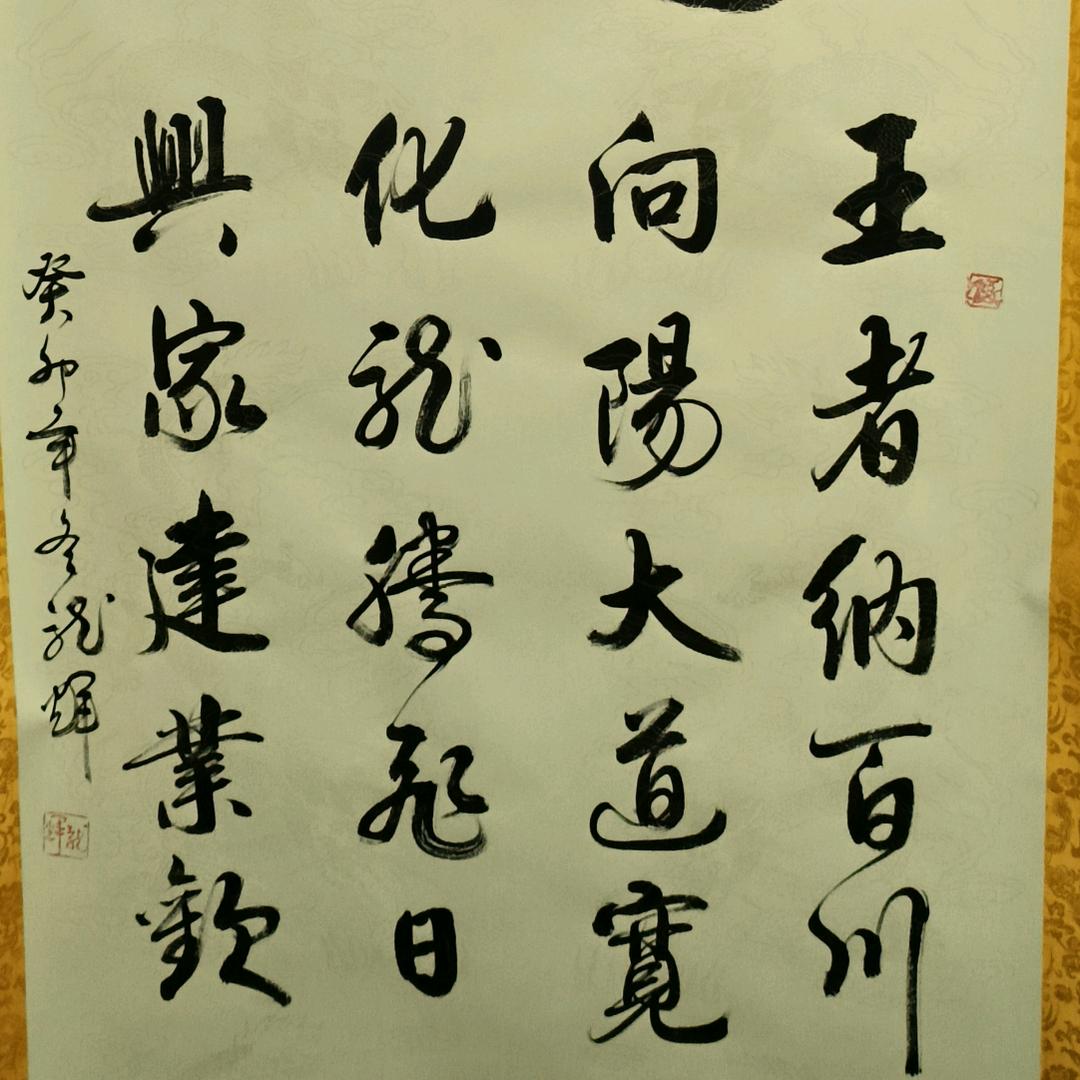 王者納百川
向陽大道寬
化龍騰飛日
興家建業歡
癸卯年冬龍輝
龍輝